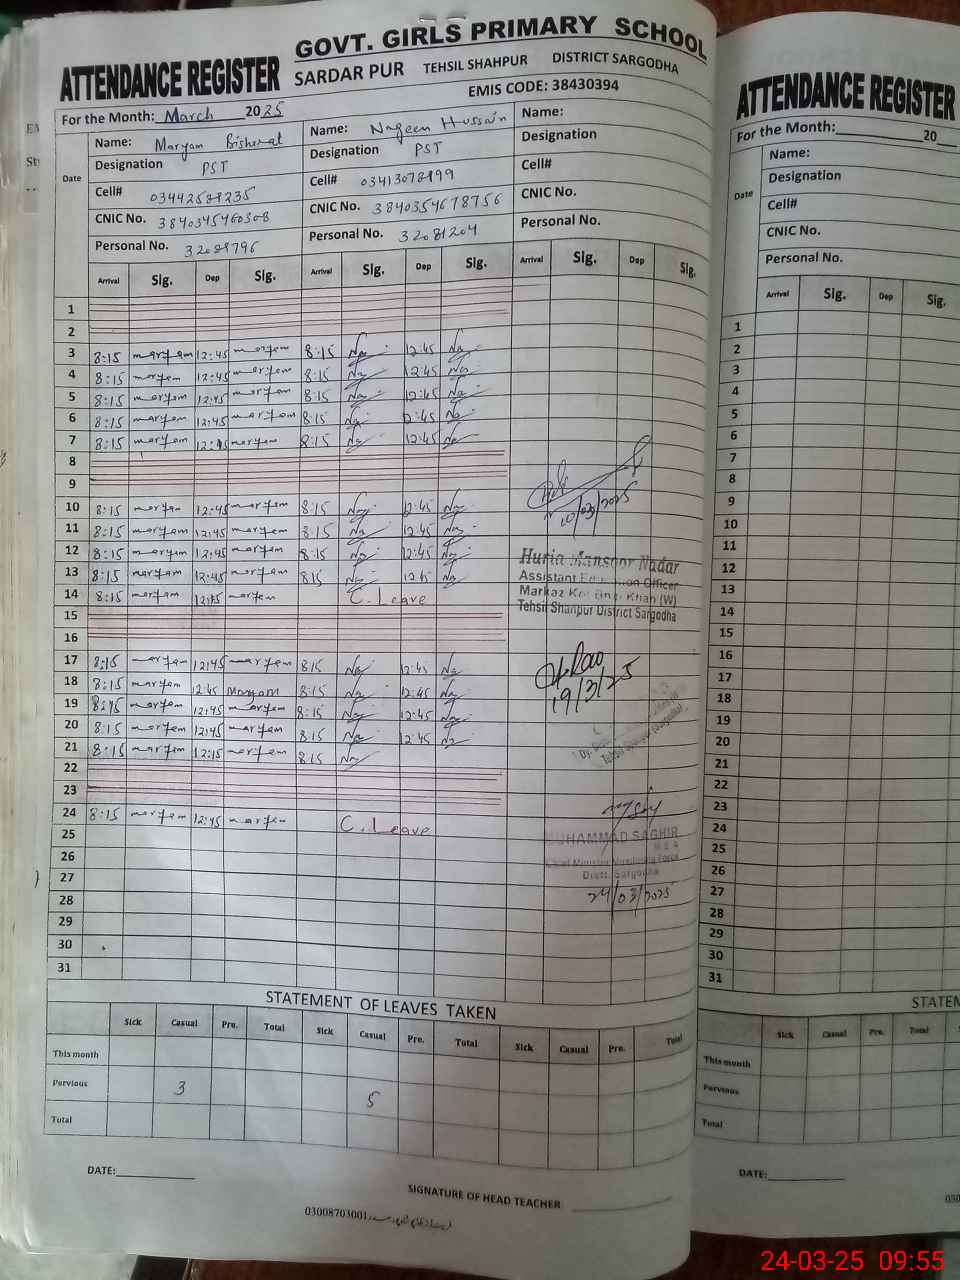 GOVT. GIRLS PRIMARY SCHOOL
ATTENDANCE REGISTER SARDAR PUR TEHSIL SHAHPUR DISTRICT SARGODHA
EMIS CODE: 38430394
For the Month: March 2025
Date Name: Maryam Name: Nageen Hussain Name:
Designation PST Designation PST Designation
Cell# Cell# Cell#
CNIC No. 3840345460308 CNIC No. 3840354678756 CNIC No.
Personal No. Personal No. 32081204 Personal No.
Arrival Sig. Dep Sig. Arrival Sig. Dep Sig. Arrival Sig. Dep Sig.
1
2
3 8:15 maryam 12:45 maryam 8:15 Na 12:45 Na
4 8:15 maryam 12:45 maryam 8:15 Na 12:45 Na
5 8:15 maryam 12:45 maryam 8:15 Na 12:45 Na
6 8:15 maryam 12:45 maryam 8:15 Na 12:45 Na
7 8:15 maryam 12:45 maryam 8:15 Na 12:45 Na
8
9
10 8:15 maryam 12:45 maryam 8:15 Na 12:45 Na
10/03/2025
11 8:15 maryam 12:45 maryam 8:15 Na 12:45 Na
12 8:15 maryam 12:45 maryam 8:15 Na 12:45 Na
13 8:15 maryam 12:45 maryam 815 Na 12:45 Na
14 8:15 maryam maryam C. Leave
Huria Mansoor Nadar
Assistant Education Officer
Markaz Kot (W)
Tehsil Shahpur District Sargodha
15
16
17 8:15 maryam 12:45 maryam 815 Na 12:45 Na
18 8:15 maryam 12:45 Maryam 8:15 Na 12:45 Na
19/3/25
19 maryam 12:45 maryam 8:15 Na 12:45 Na
20 8:15 maryam 12:45 maryam 8:15 Na 12:45 Na
21 8:15 maryam 12:15 maryam 8:15 Na
22
23
24 8:15 maryam 12:45 maryam C. Leave
25
MUHAMMAD SAGHIR
M E A
Chief Minister Monitoring Force
Distt. Sargodha
24/03/2025
26
27
28
29
30
31
STATEMENT OF LEAVES TAKEN
Sick Casual Pre. Total Sick Casual Pre. Total Sick Casual Pre. Total
This month
Pervious 3 5
Total
DATE:
SIGNATURE OF HEAD TEACHER
03008703001
ATTENDANCE REGISTER
For the Month: 20
Date Name:
Designation
Cell#
CNIC No.
Personal No.
Arrival Sig. Dep Sig.
1
2
3
4
5
6
7
8
9
10
11
12
13
14
15
16
17
18
19
20
21
22
23
24
25
26
27
28
29
30
31
Sick Casual Pre. Total
This month
Pervious
Total
DATE:
24-03-25 09:55